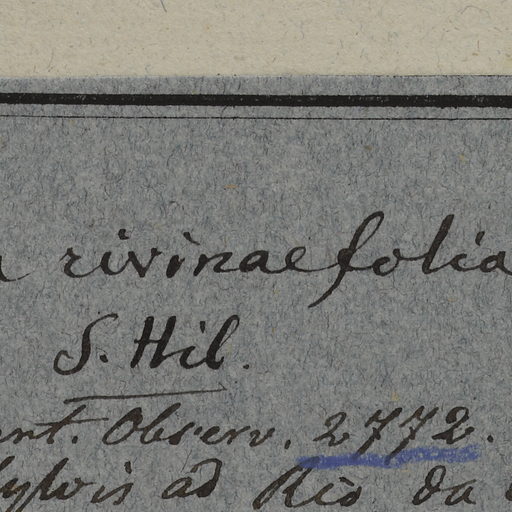 rivinaefolia
S. Hil.
ent. Observ. 2772.
sylvis ad Rio da